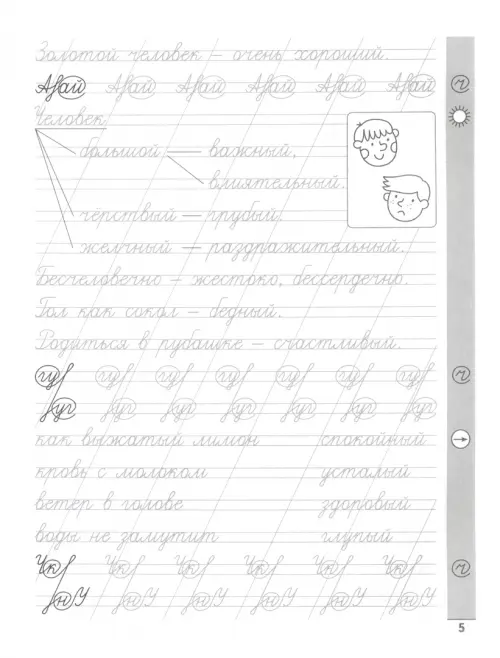 Золотой человек – очень хороший.
Айай Айай Айай Айай Айай Айай
Человек
большой — важный,
влиятельный.
чёрствый — грубый.
желчный — раздражительный.
Бесчеловечно – жестоко, бессердечно.
Гол как сокол – бедный.
Родиться в рубашке – счастливый.
гу гу гу гу гу гу гу
уг уг уг уг уг уг уг
как выжатый лимон спокойный
кровь с молоком усталый
ветер в голове здоровый
воды не замутит глупый
Чк Чк Чк Чк Чк Чк
5